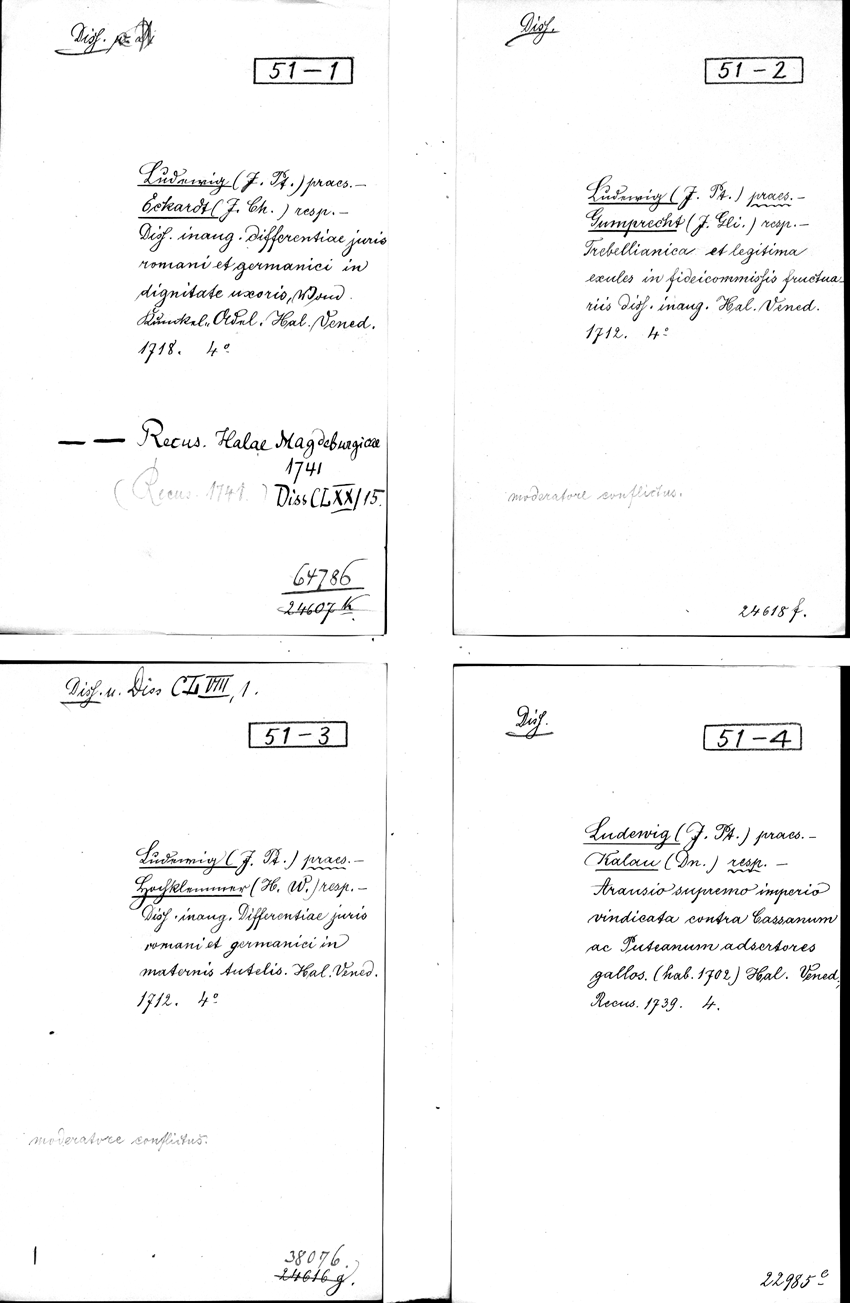 Diss.
51-1
Ludewig (J. Pt.) praes. —
Eckardt (J. Ch.) resp. —
Diss. inaug. differentiae juris
romani et germanici in
dignitate uxoris, Vom
Kunckel-Adel. Hal. Vened.
1718. 4°
— — Recus. Halae Magdeburgicae
1741
(Recus. 1741.) Diss CLXX/15.
64786
24607 k
Diss.
51-2
Ludewig (J. Pt.) praes. —
Gumprecht (J. Gli.) resp. —
Trebellianica et legitima
exules in fideicommissis fructua-
riis diss. inaug. Hal. Vened.
1712. 4°
moderatore conflictus.
24618 f.
Diss. u. Diss CLVIII, 1.
51-3
Ludewig (J. Pt.) praes. —
Hochklemmer (H. W.) resp. —
Diss. inaug. Differentiae juris
romani et germanici in
maternis tutelis. Hal. Vened.
1712. 4°
moderatore conflictus.
38076.
24616 g.
Diss.
51-4
Ludewig (J. Pt.) praes. —
Kalau (Dn.) resp. —
Arausio supremo imperio
vindicata contra Cassanum
ac Puteanum adsertores
gallos. (hab. 1702) Hal. Vened.
Recus. 1739. 4.
22985 e